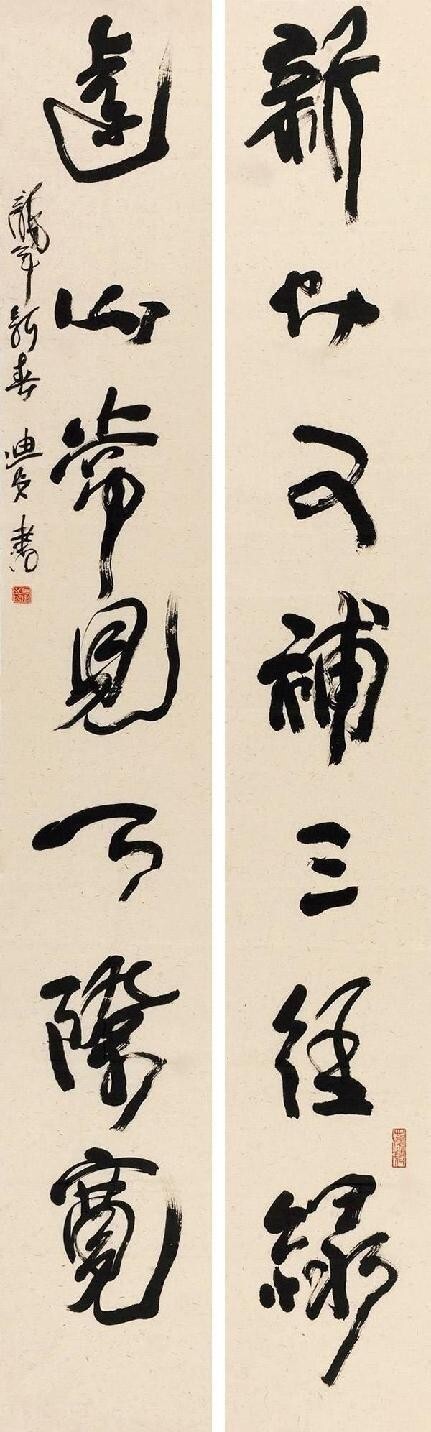 新竹又補三徑綠
遠山常見天際寬
龍年新春 書